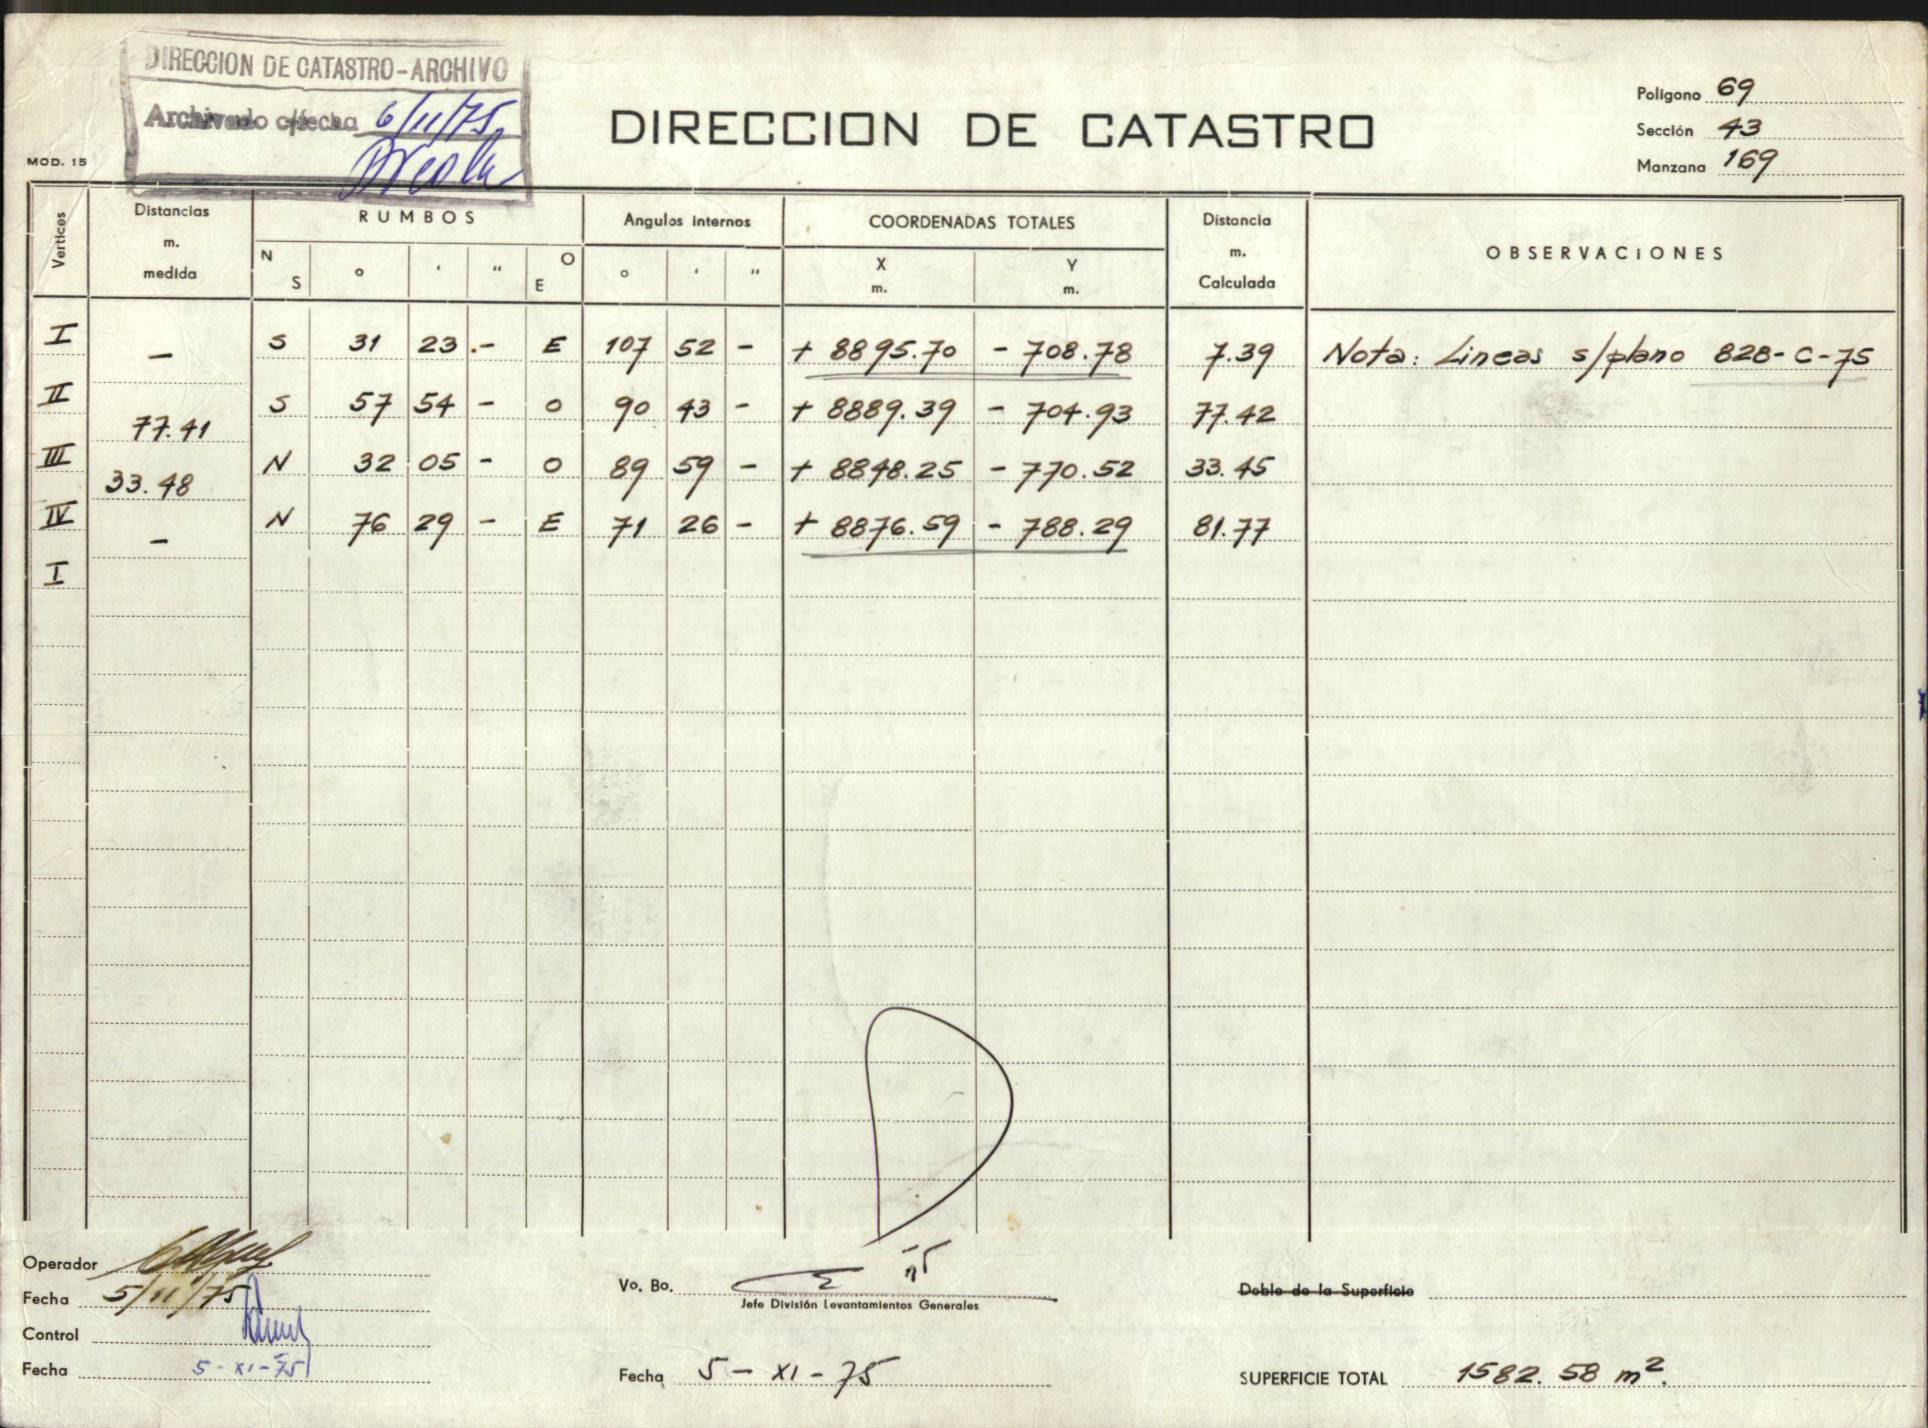 DIRECCION DE CATASTRO-ARCHIVO
Archivado c/fecha 6/11/75
MOD. 15
DIRECCION DE CATASTRO
Polígono 69
Sección 43
Manzana 169
Vertices
Distancias m. medida
RUMBOS
Angulos internos
COORDENADAS TOTALES
Distancia m. Calculada
OBSERVACIONES
N S ° ' " O E ° ' " X m. Y m.
I — S 31 23 .- E 107 52 - + 8895.70 - 708.78 7.39 Nota: Lineas s/plano 828-C-75
II 77.41 S 57 54 - O 90 43 - + 8889.39 - 704.93 77.42
III 33.48 N 32 05 - O 89 59 - + 8848.25 - 770.52 33.45
IV — N 76 29 - E 71 26 - + 8876.59 - 788.29 81.77
I
Operador
Fecha 5/11/75
Control
Fecha 5-XI-75
Vo. Bo.
Jefe División Levantamientos Generales
Fecha 5-XI-75
Doble de la Superficie
SUPERFICIE TOTAL 1582.58 m².